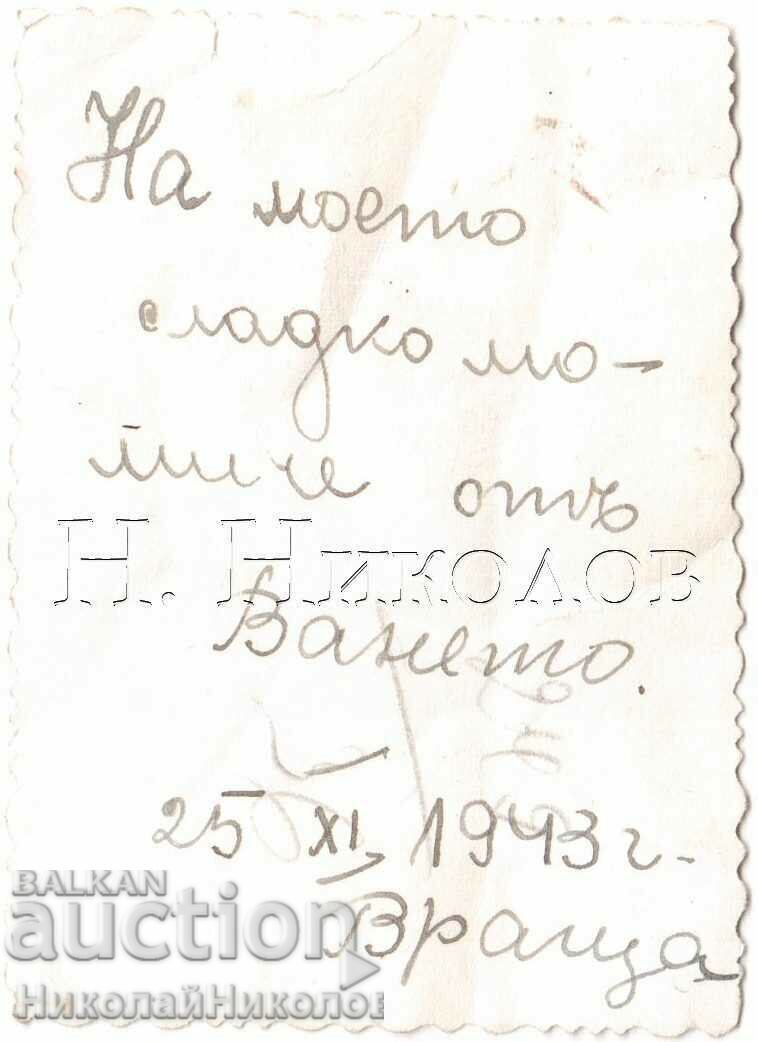 На моето
сладко мо-
миче отъ
Н. Николов
Ването.
25 XI, 1943 г.
Враца
BALKAN
auction
НиколайНиколов